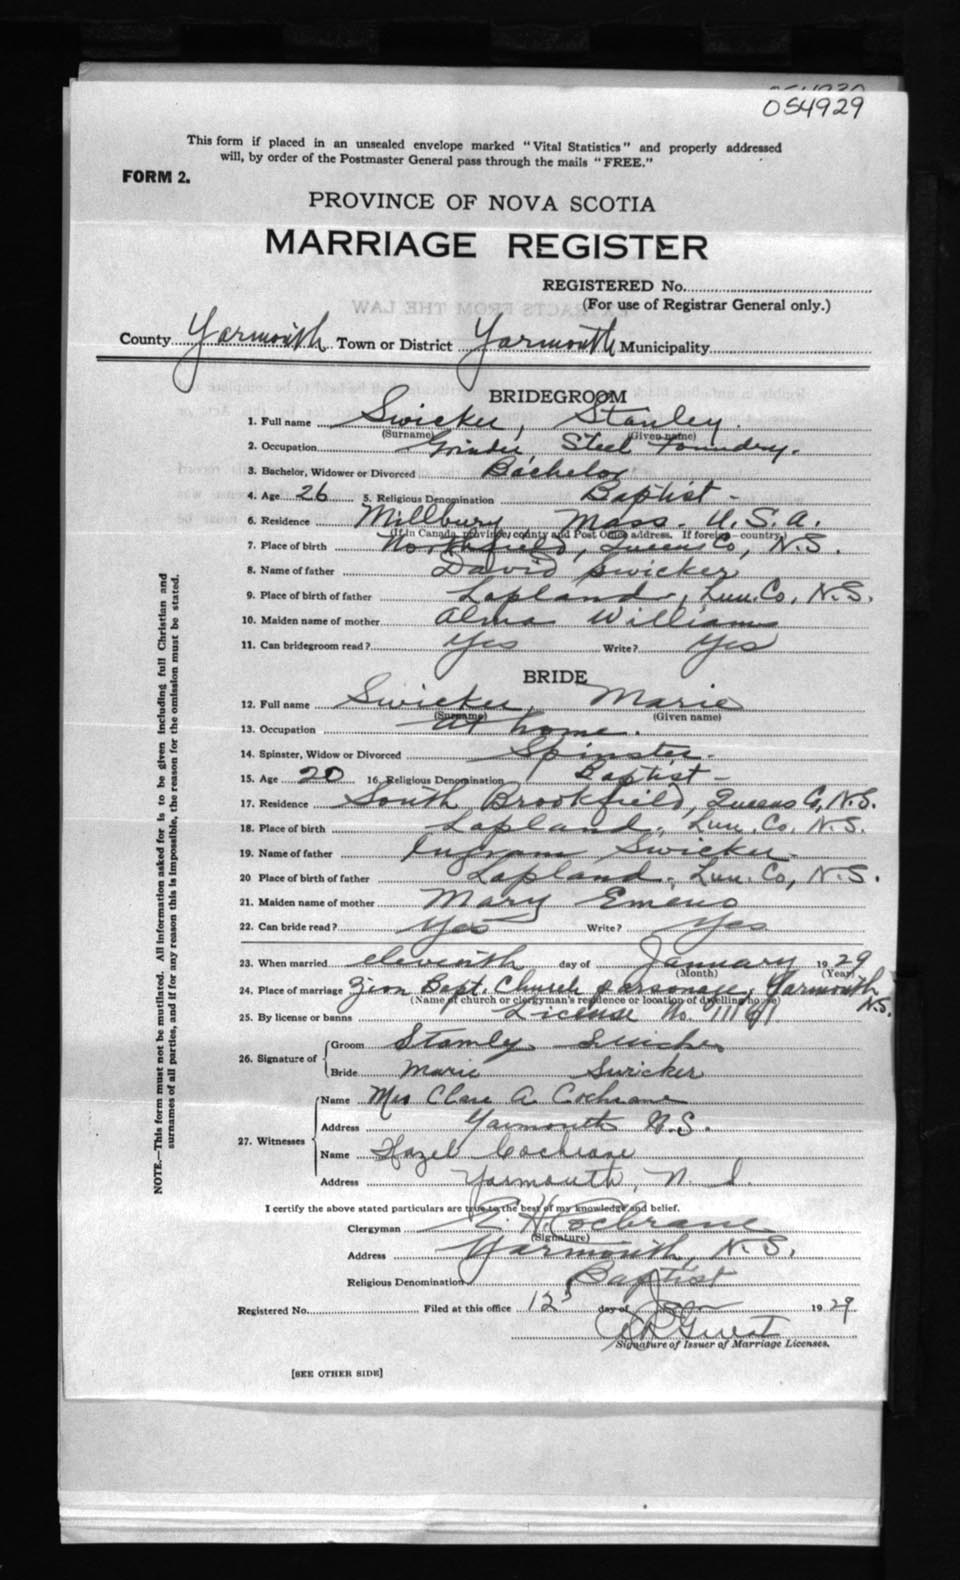 054929
This form if placed in an unsealed envelope marked "Vital Statistics" and properly addressed
will, by order of the Postmaster General pass through the mails "FREE."
FORM 2.
PROVINCE OF NOVA SCOTIA
MARRIAGE REGISTER
REGISTERED No.
(For use of Registrar General only.)
County Yarmouth Town or District Yarmouth Municipality
BRIDEGROOM
1. Full name Swicker, Stanley.
(Surname) (Given name)
2. Occupation Grinder Steel Foundry.
3. Bachelor, Widower or Divorced Bachelor
4. Age 26 5. Religious Denomination Baptist -
6. Residence Millbury Mass. U.S.A.
(If in Canada, province, county and Post Office address. If foreign—country.)
7. Place of birth Northfield, Queens Co, N.S.
8. Name of father David Swicker
9. Place of birth of father Lapland, Lun. Co, N.S.
10. Maiden name of mother Alma Williams
11. Can bridegroom read? Yes Write? Yes
BRIDE
12. Full name Swicker, Marie
(Surname) (Given name)
13. Occupation At home.
14. Spinster, Widow or Divorced Spinster.
15. Age 20 16. Religious Denomination Baptist -
17. Residence South Brookfield, Queens Co, N.S.
18. Place of birth Lapland, Lun. Co. N.S.
19. Name of father Ingram Swicker
20 Place of birth of father Lapland, Lun. Co, N.S.
21. Maiden name of mother Mary Emeno
22. Can bride read? Yes Write? Yes
23. When married eleventh day of January 1929
(Month) (Year)
24. Place of marriage Zion Bapt. Church parsonage, Yarmouth N.S.
(Name of church or clergyman's residence or location of dwelling house)
25. By license or banns License No.
26. Signature of Groom Stanley Swicker
Bride Marie Swicker
27. Witnesses Name Mrs Clare A Cochrane
Address Yarmouth N.S.
Name Hazel Cochrane
Address Yarmouth, N. S.
I certify the above stated particulars are true to the best of my knowledge and belief.
Clergyman E. H. Cochrane
(Signature)
Address Yarmouth, N.S.
Religious Denomination Baptist
Registered No. Filed at this office 12 day of Jan 1929
Signature of Issuer of Marriage Licenses.
[SEE OTHER SIDE]
NOTE.—This form must not be mutilated. All information asked for is to be given including full Christian and
surnames of all parties, and if for any reason this is impossible, the reason for the omission must be stated.